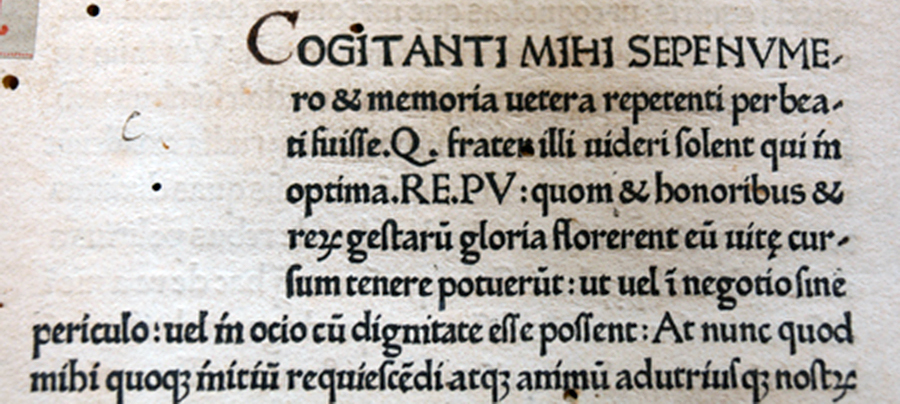 COGITANTI MIHI SEPENVME-
ro & memoria uetera repetenti perbea-
ti fuisse.Q. frater illi uideri solent qui in
optima.RE.PV: quom & honoribus &
reꝝ gestarū gloria florerent eū uitę cur-
sum tenere potuerūt: ut uel ī negotio sine
periculo: uel in ocio cū dignitate esse possent: At nunc quod
mihi quoqꝫ initiū requiescēdi atqꝫ animū adutriusqꝫ nostꝝ